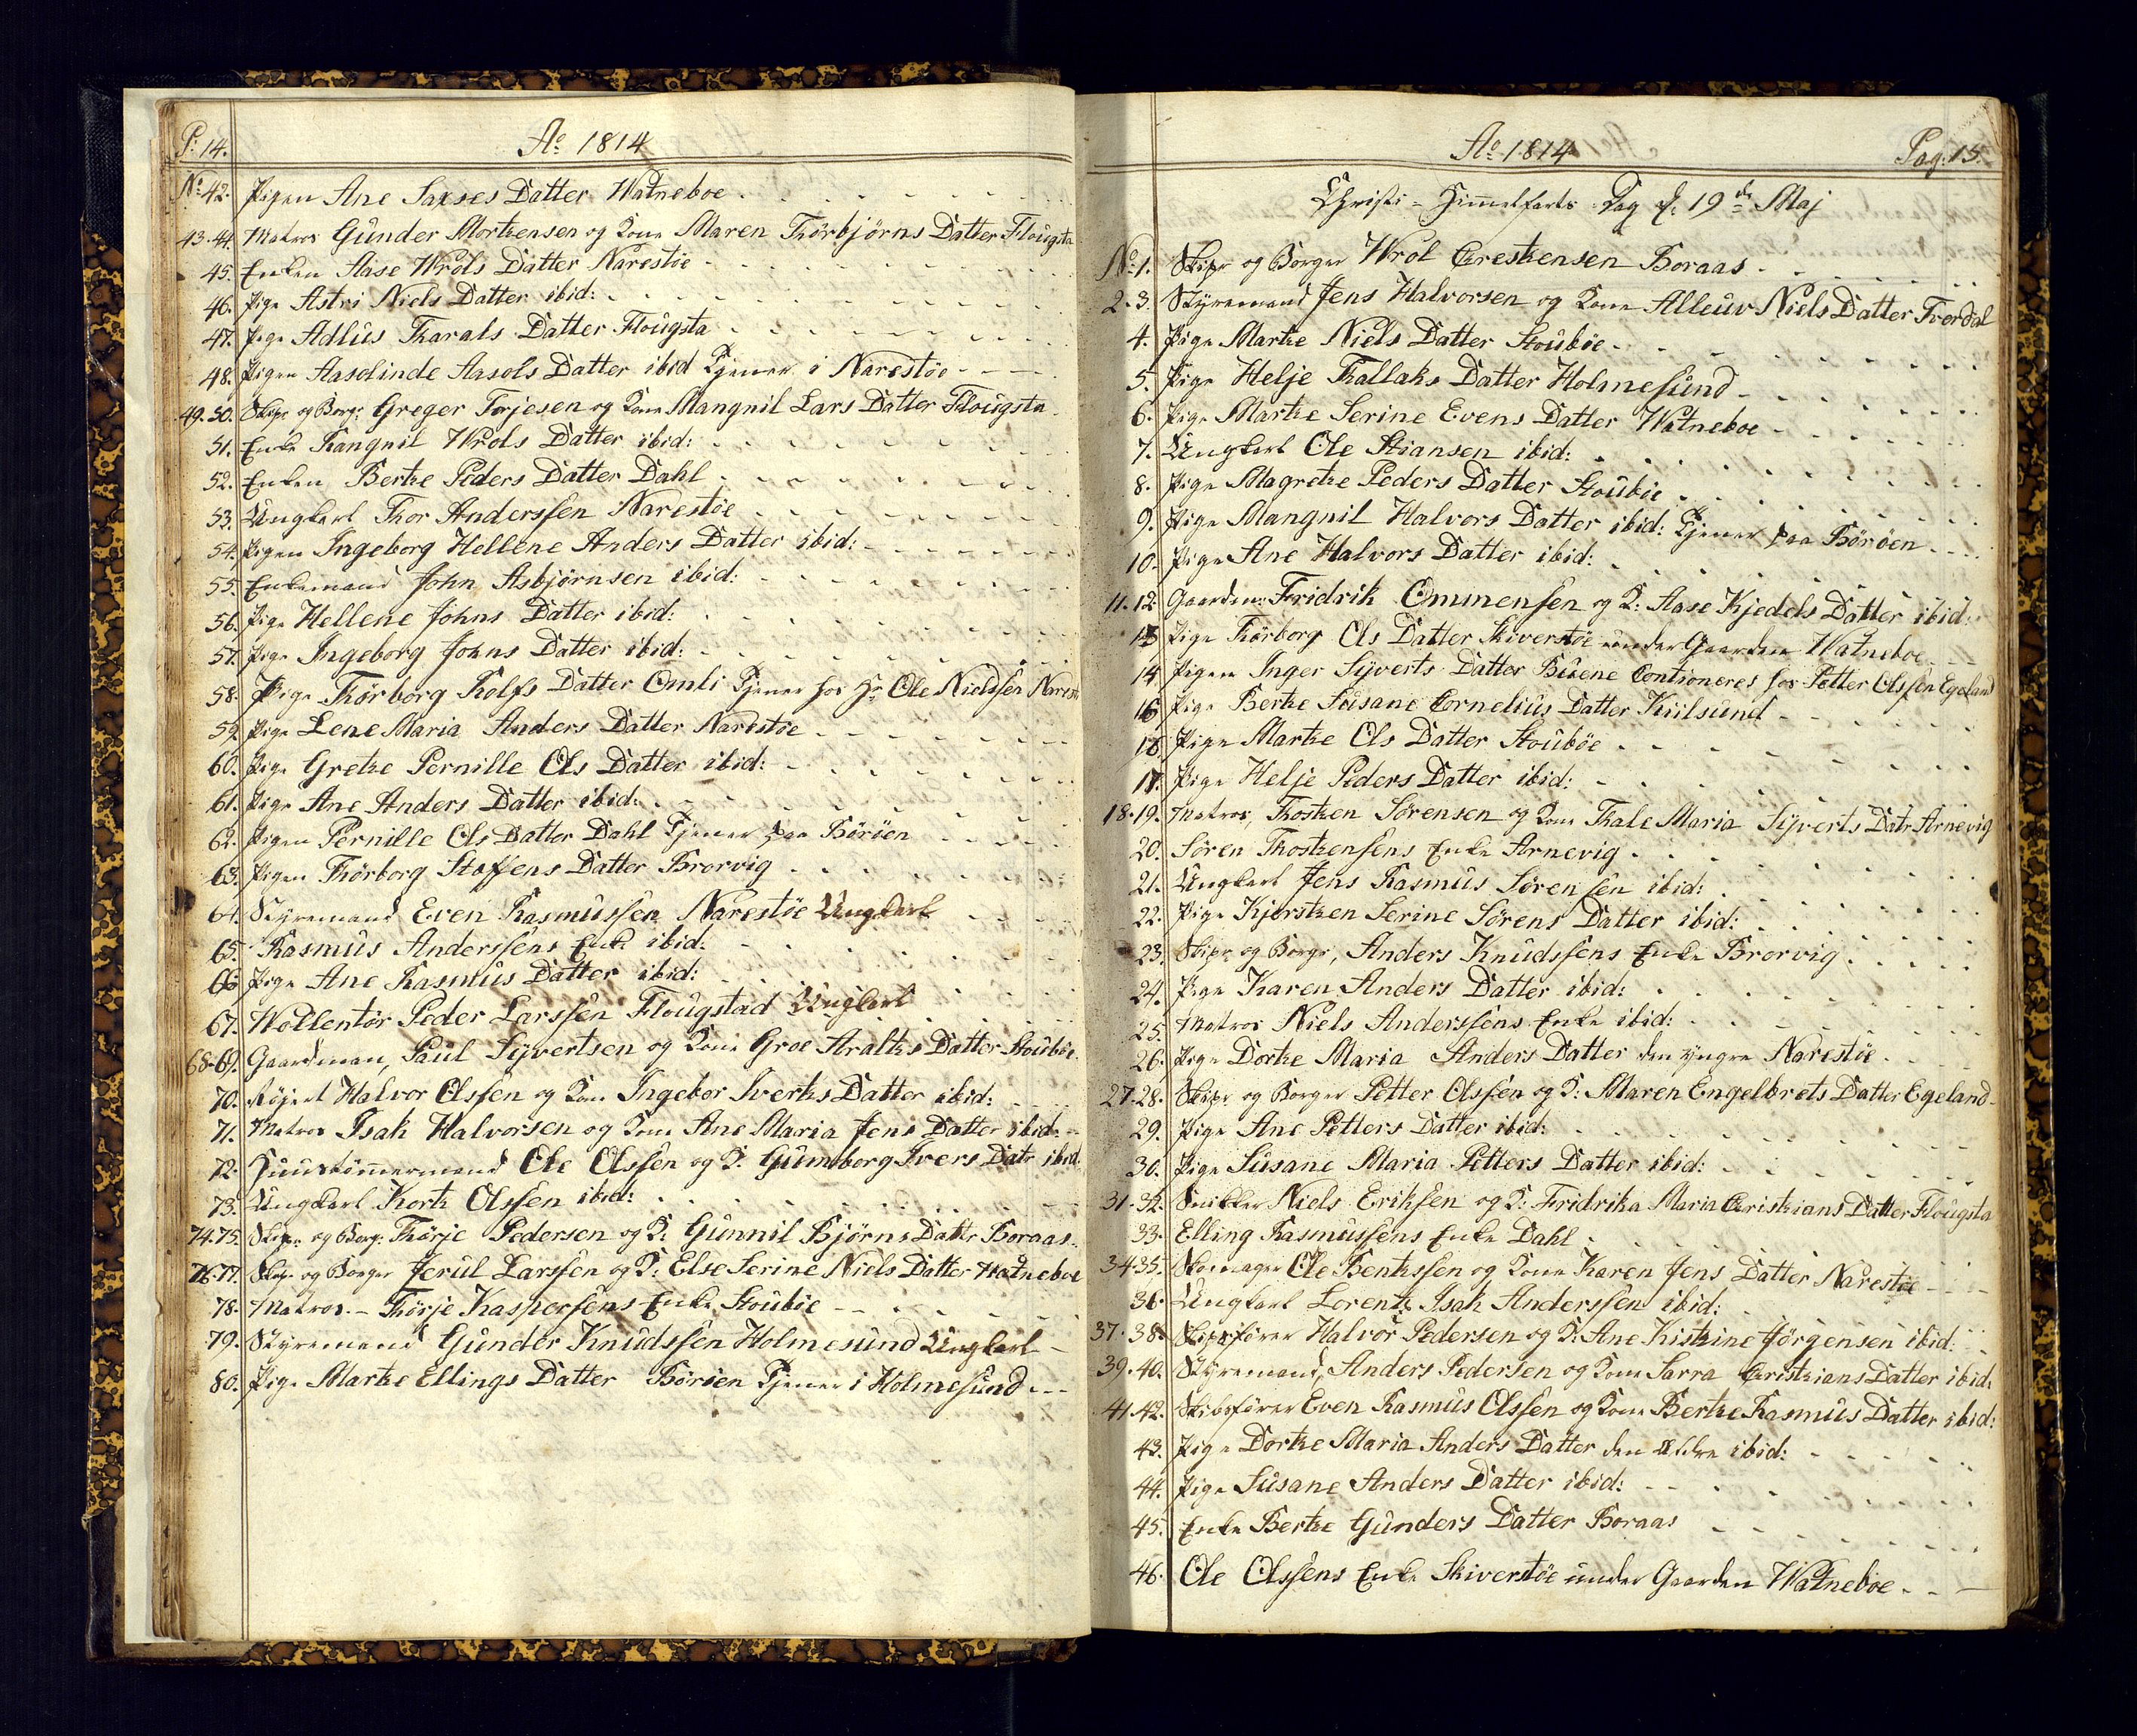 P: 14.
Ao 1814
No 42. Pigen Ane Saxses Datter Watneboe
43.44. Matros Gunder Mortensen og Kone Maren Thorbjørns Datter Flougsta
45. Enken Aase Wrols Datter Narestøe
46. Pige Astri Niels Datter ibid:
47. Pige Adlus Tharals Datter Flougsta
48. Pigen Aasolinde Aasols Datter ibid Tjener i Narestøe
49.50. Skipr og Borgr Greger Torjesen og Kone Mangnil Lars Datter Flougsta
51. Enke Rangnil Wrols Datter ibid:
52. Enken Berthe Peders Datter Dahl
53. Ungkarl Thor Anderssen Narestøe
54. Pigen Ingeborg Hellene Anders Datter ibid:
55. Enkemand John Asbjørnsen ibid:
56. Pige Hellene Johns Datter ibid:
57. Pige Ingeborg Johns Datter ibid:
58. Pige Thørborg Rolfs Datter Omli Tjener hos Hr Ole Nielssen Narestø
59. Pige Lene Maria Anders Datter Narestøe
60. Pige Grethe Pernille Ols Datter ibid:
61. Pige Ane Anders Datter ibid:
62. Pigen Pernille Ols Datter Dahl Tjener paa Børøen
63. Pigen Thørborg Steffens Datter Brorvig
64. Styremand Even Rasmussen Narestøe Ungkarl
65. Rasmus Anderssens Enke ibid:
66 Pige Ane Rasmus Datter ibid:
67. Wollentør Peder Larssen Flougstad Ungkarl
68.69. Gaardman, Paul Syvertsen og Kone Groe Aralths Datter Stoubøe
70. Røjert Halvor Olssen og Kone Ingebor Iverts Datter ibid:
71. Matros Isak Halvorsen og Kone Ane Maria Jens Datter ibid:
72. Huustømmermand Ole Olssen og K: Gumborg Ivers Datr ibid
73. Ungkarl Korth Olssen ibid:
74.75. Skipr og Borgr Thørje Pedersen og K: Gunnil Bjørns Datter Boraas
76.77. Skipr og Borger Jerul Larssen og K: Else Serine Niels Datter Watneboe
78. Matros - Thørje Kaspersens Enke Stoubøe
79. Styremand Gunder Knudssen Holmesund Ungkarl
80. Pige Marthe Ellings Datter Børøen Tjener i Holmesund
Ao 1814
Pag: 15.
Christi-Himmelfarts Dag d: 19de Maj
No 1. Skipr og Borger Wrol Chrestensen Boraas
2.3. Styremand Jens Halvorsen og Kone Alleuv Niels Datter Tverdal
4. Pige Marthe Niels Datter Stoubøe
5. Pige Helje Tallaks Datter Holmesund
6. Pige Marthe Serine Evens Datter Watneboe
7. Ungkarl Ole Stiansen ibid:
8. Pige Magrethe Peders Datter Stoubøe
9. Pige Mangnil Halvors Datter ibid: Tjener paa Børøen
10. Pige Ane Halvors Datter ibid:
11.12 Gaardm: Fridrik Ommensen og K: Aase Kjedels Datter ibid:
13 Pige Thørborg Ols Datter Skiverstøe under Gaarden Watneboe
14 Pigen Inger Syverts Datter Buene Contioneres hos Petter Olssen Egeland
16 Pige Berthe Susane Cornelius Datter Kiilsund
16. Pige Marthe Ols Datter Stoubøe
17. Pige Helje Peders Datter ibid:
18.19. Matros, Thosten Sørensen og Kone Thale Maria Syverts Datr Arnevig
20. Søren Thostensens Enke Arnevig
21. Ungkarl Jens Rasmus Sørensen ibid:
22. Pige Kjersten Serine Sørens Datter ibid:
23. Skipr og Borgr, Anders Knudssens Enke Brorvig
24. Pige Karen Anders Datter ibid:
25. Matros Niels Anderssens Enke ibid:
26. Pige Dorthe Maria Anders Datter den yngre Narestøe
27.28. Skipr og Borger Petter Olssen og K: Maren Engelbrets Datter Egeland
29. Pige Ane Petters Datter ibid:
30. Pige Susane Maria Petters Datter ibid:
31.32. Snikker Niels Eriksen og K: Fridrika Maria Christians Datter Flougsta
33. Elling Rasmussens Enke Dahl
34.35. Skomager Ole Bentssen og Kone Karen Jens Datter Narestøe
36. Ungkarl Lorentz Isak Anderssen ibid:
37.38. Skipsfører Halvor Pedersen og K: Ane Kistine Jørgensen ibid:
39.40. Styremand, Anders Pedersen og Kone Sarra Christians Datter ibid:
41.42. Skibsfører Even Rasmus Olssen og Kone Berthe Rasmus Datter ibid:
43. Pige Dorthe Maria Anders Datter den Ældre ibid:
44. Pige Susane Anders Datter ibid:
45. Enke Berthe Gunders Datter Boraas
46. Ole Olssens Enke Skiverstøe under Gaarden Watneboe